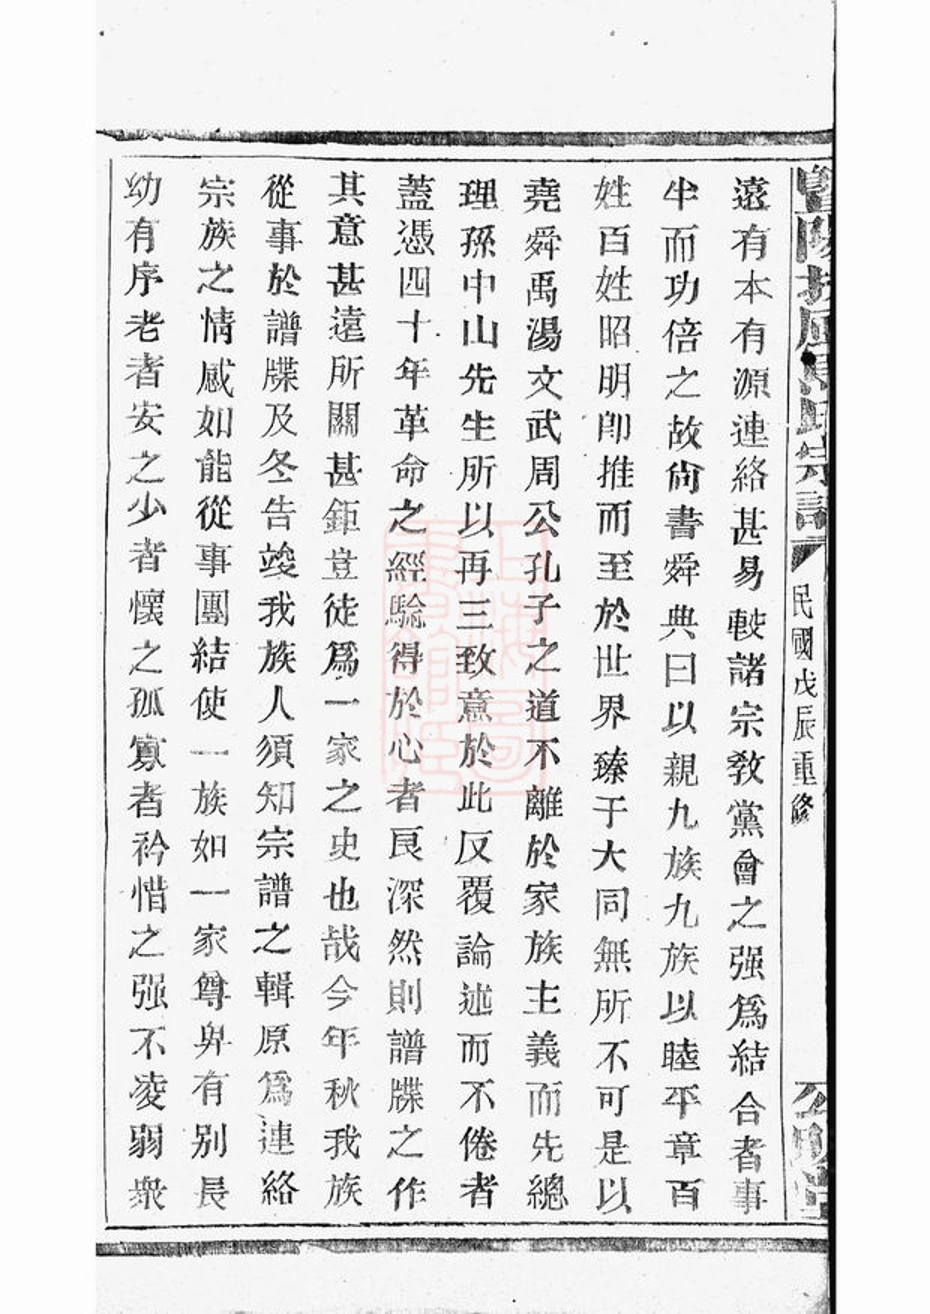 暨陽扶風馬氏宗譜 民國戊辰重修
遠有本有源連絡甚易較諸宗教黨會之强爲結合者事
半而功倍之故尙書舜典曰以親九族九族以睦平章百
姓百姓昭明卽推而至於世界臻于大同無所不可是以
堯舜禹湯文武周公孔子之道不離於家族主義而先總
理孫中山先生所以再三致意於此反覆論述而不倦者
蓋憑四十年革命之經驗得於心者良深然則譜牒之作
其意甚遠所關甚鉅豈徒爲一家之史也哉今年秋我族
從事於譜牒及冬告竣我族人須知宗譜之輯原爲連絡
宗族之情感如能從事團結使一族如一家尊卑有别長
幼有序老者安之少者懷之孤寡者衿惜之强不凌弱衆